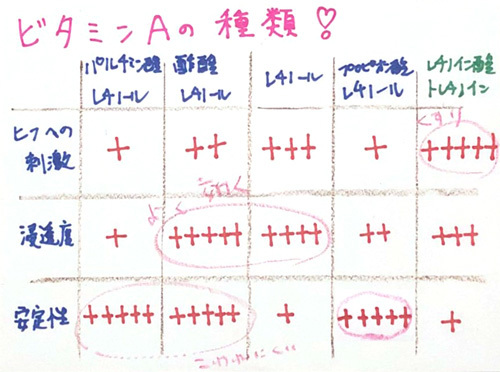 ビタミンAの種類！
パルチミン酸 酢酸 レチノール プロピオン酸 レチノイン酸
レチノール レチノール レチノール トレチノイン
くすり
ヒフへの + ++ +++ + +++++
刺激
よく 効く
浸透度 + +++++ ++++ ++ +++
安定性 +++++ +++++ + +++++ +
こわれにくい